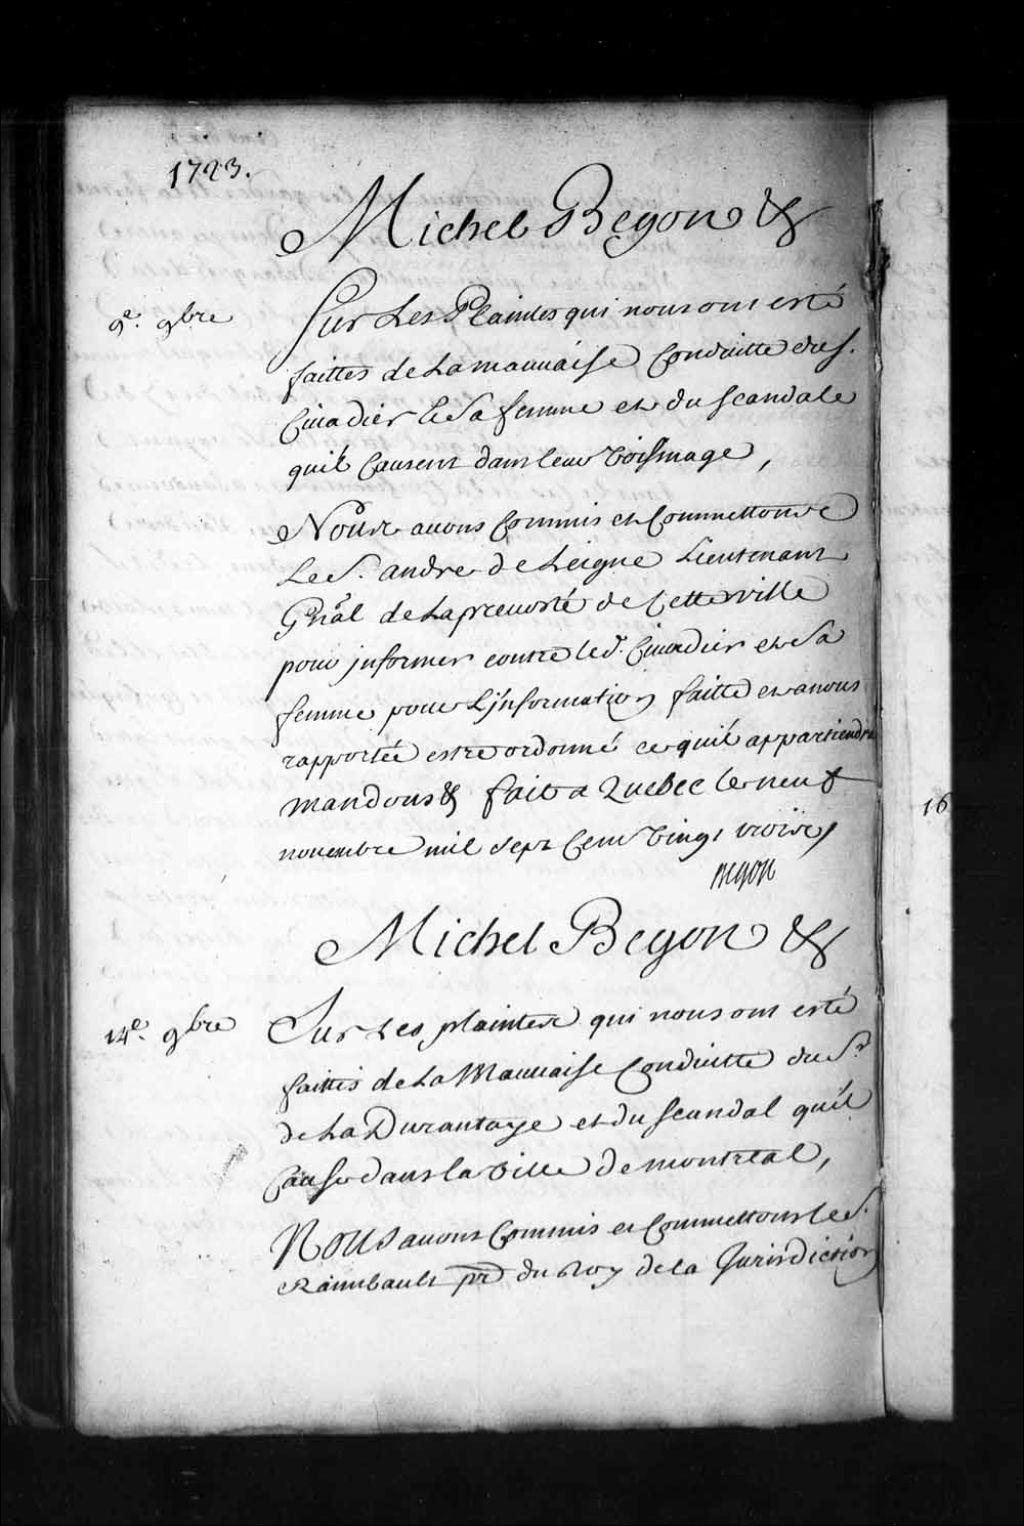 1723.
Michel Begon &
9e. 9bre
Sur Les Plaintes qui nous ont esté
faittes de La mauuaise Conduitte du S.
Cinadier & Sa femme et du scandale
quil Causent dans leur Voisinage,
Nous auons Commis et Commettons
Le S. andre de Leigne Lieutenant
Gnãl de La preuosté de Cette ville
pour jnformer contre led. Cinadier et Sa
femme pour L'jnformation faitte et a nous
rapportée estre ordonné ce qu'il appartiendra
mandons & fait a Quebec le neuf
nouembre mil Sept Cent Vingt trois,
Begon
Michel Begon &
14e. 9bre
Sur Les plaintes qui nous ont esté
faittes de La Mauuaise Conduitte du Sr
de La Durantaye et du scandal qu'il
Cause dans la Ville de montreal,
Nous auons Commis et Commettons le S.
Raimbault pr du Roy de la Jurisdiction
16